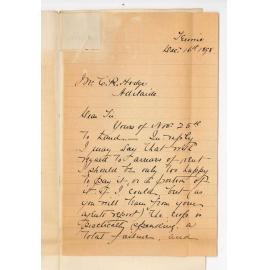 Dec: 16th 1898
Mr C. R. Hodge
Adelaide
Dear Sir
Yours of Nov. 25th
to hand — In reply
I may say that with
regards to arrears of rent
I should be only too happy
to pay it, or a portion of
it if I could, but as
you will learn from your
agents report, the crop is
practically speaking, a
total failure, and